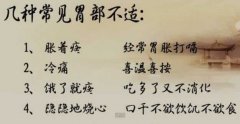 几种常见胃部不适:
1、胀着疼 经常胃胀打嗝
2、冷痛 喜温喜按
3、饿了就疼 吃多了又不消化
4、隐隐地烧心 口干不欲饮饥不欲食